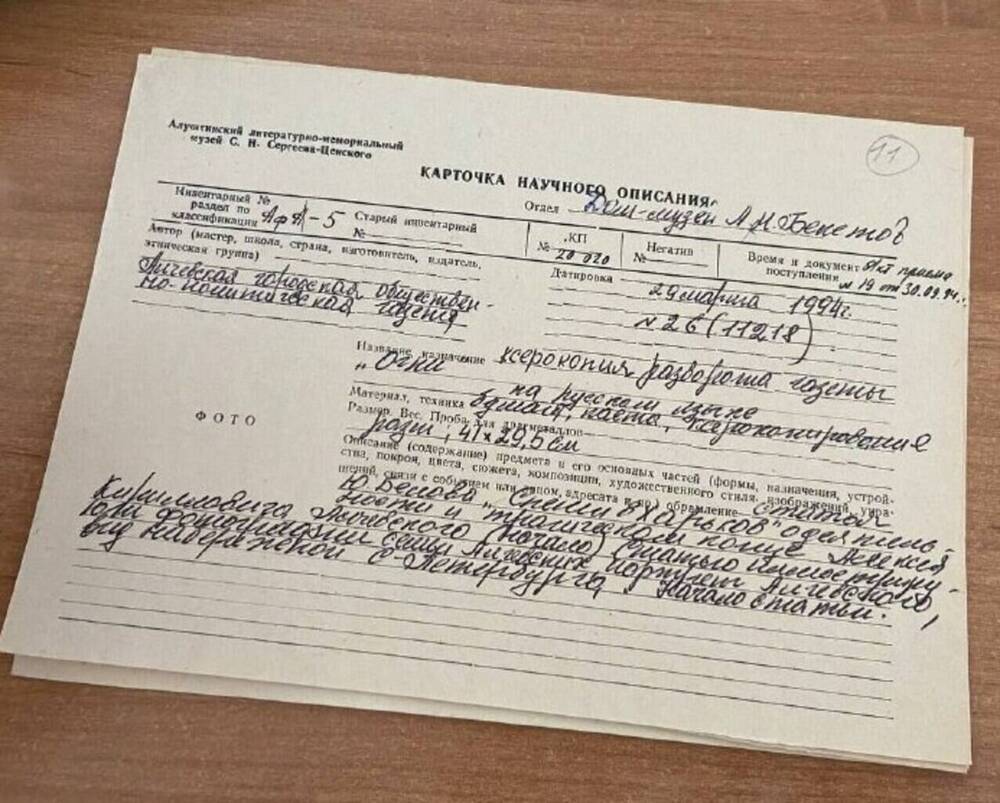 Алуштинский литературно-мемориальный
музей С. Н. Сергеева-Ценского
11
КАРТОЧКА НАУЧНОГО ОПИСАНИЯ
Отдел Дом-музей А.Н.Бекетов
Инвентарный №
раздел по
классификации АфД-5
Старый инвентарный
№
КП
№ 20 020
Негатив
№
Время и документ
поступления
акт приема
№ 19 от 30.09.94г.
Автор (мастер, школа, страна, изготовитель, издатель,
этническая группа)
городская обществен-
но-политическая газета
Датировка
29 марта 1994г.
№ 26 (11218)
Название, назначение ксерокопия разворота газеты
"Огни
на русском языке
Материал, техника бумага, паста, ксерокопирование
Размер. Вес. Проба для драгметаллов
разм.; 41 х 29,5 см
ФОТО
Описание (содержание) предмета и его основных частей (формы, назначения, устрой-
ства, покроя, цвета, сюжета, композиции, художественного стиля, изображений, укра-
шений, связи с событием или лицом, адресата и пр.) обрамление
статья
Ю. Белова "Харьков" о деятель-
ности и трагическом конце Алексея
Кирилловича Алчевского (начало) Статью иллюстриру-
ют фотографии семьи Алчевских, портреты Алчевского,
вид набережной С-Петербурга, Начало статьи.